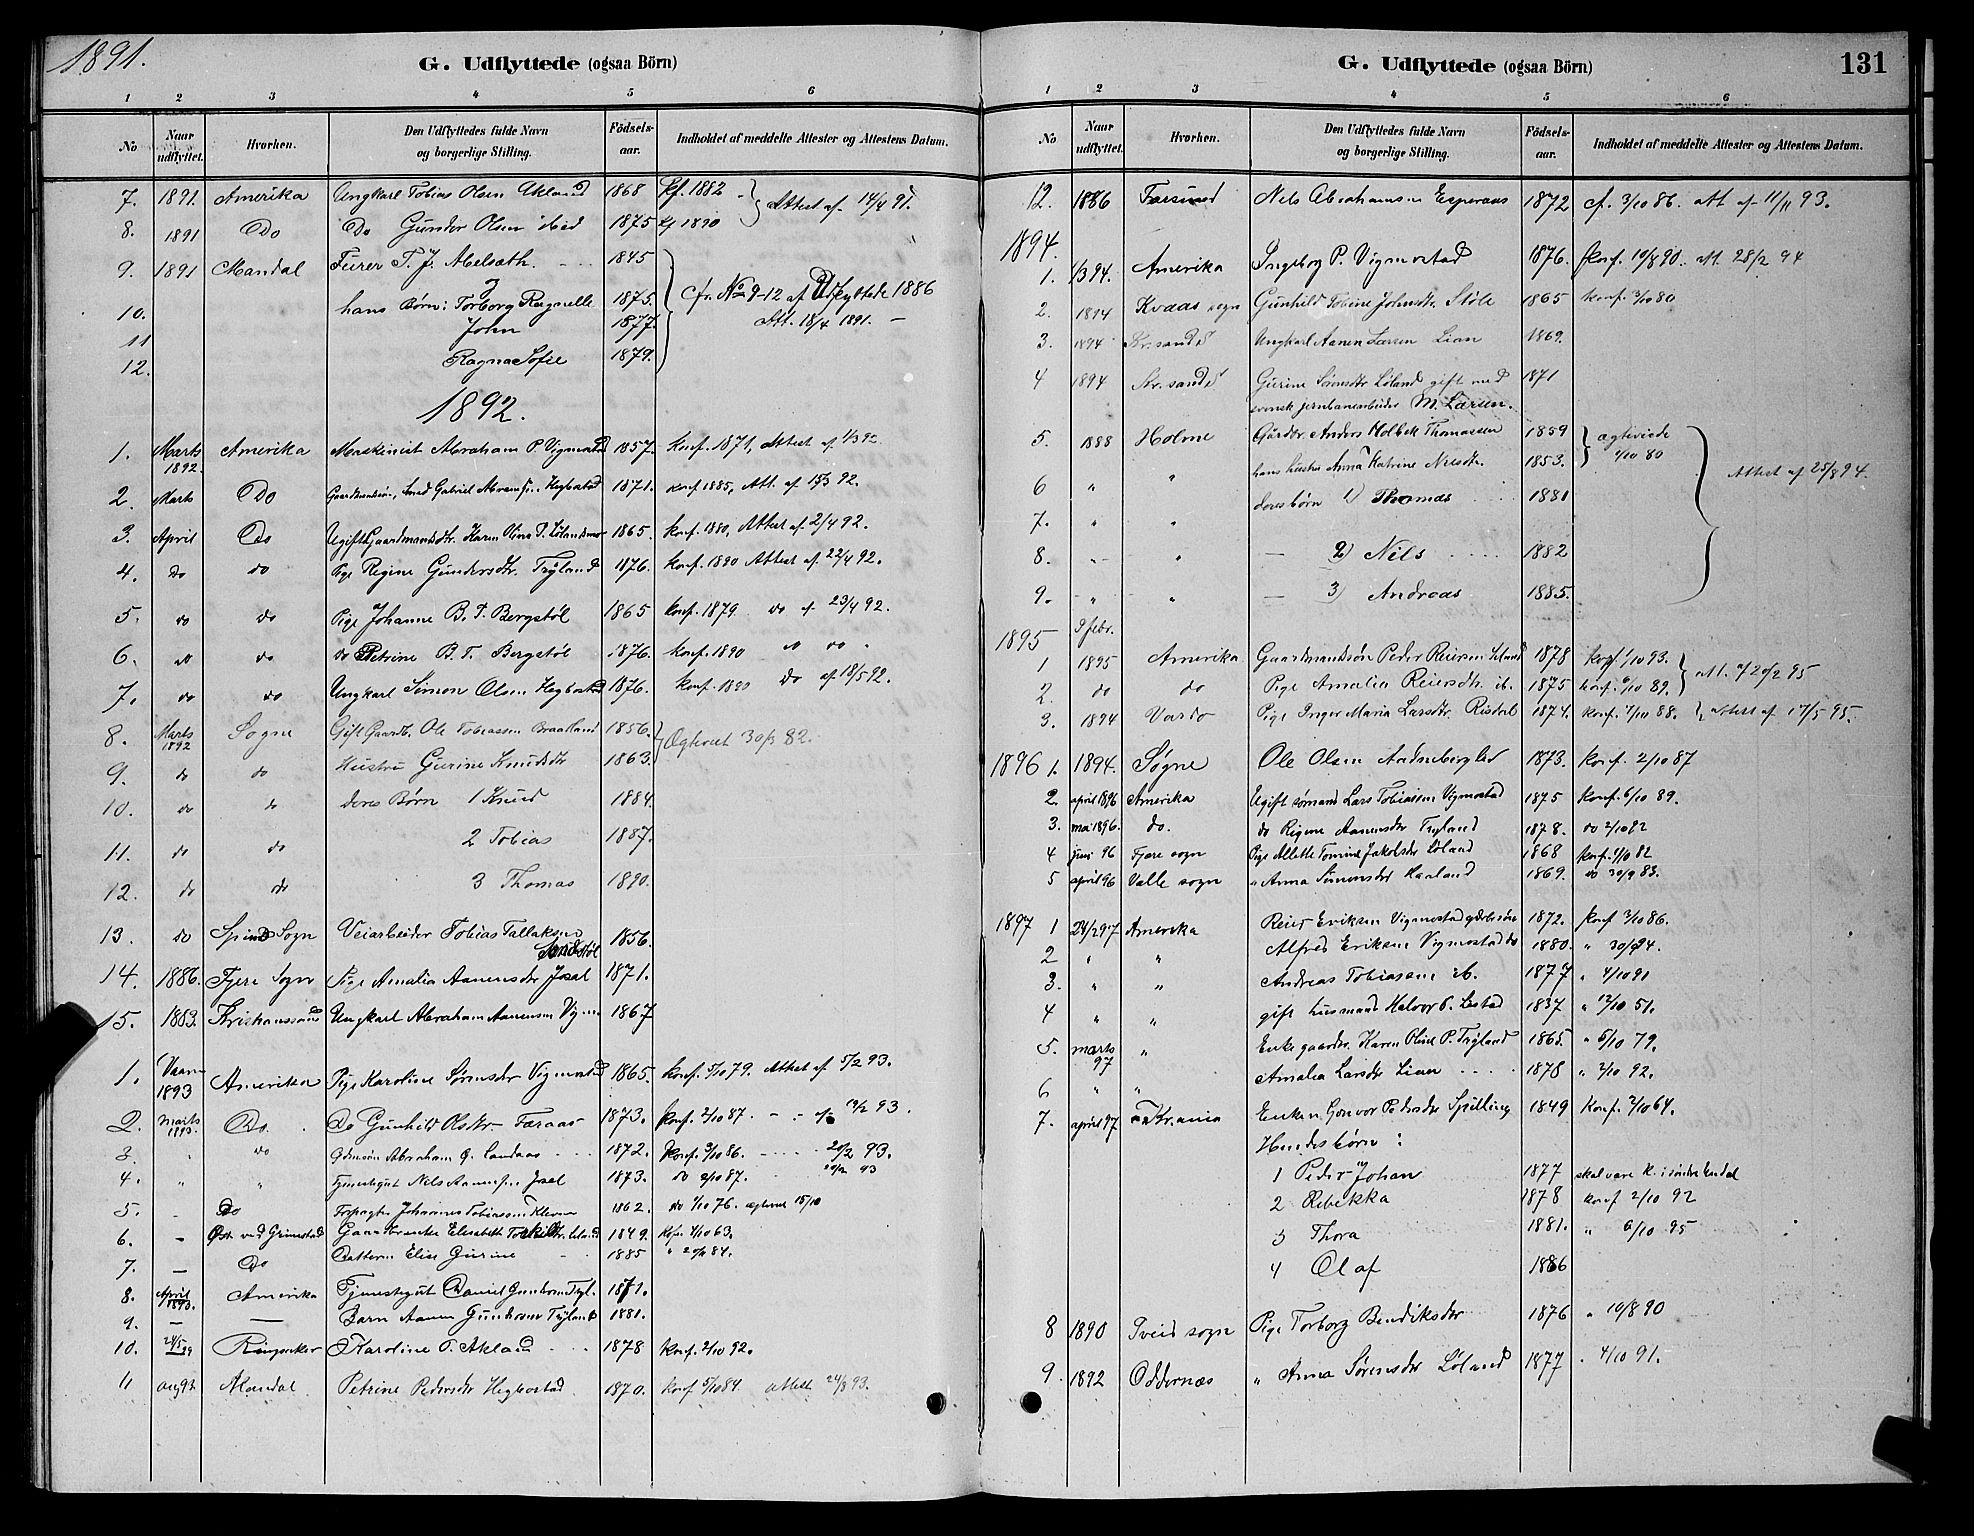 1891.
G. Udflyttede (ogsaa Börn)
1 2 3 4 5 6
No Naar udflyttet. Hvorhen. Den Udflyttedes fulde Navn og borgerlige Stilling. Födsels-aar. Indholdet af meddelte Attester og Attestens Datum.
7. 1891 Amerika Ungkarl Tobias Olsen Akland 1868 kf. 1882 Attest af 14/4 91.
8. 1891 Do Do Gunder Olsen ibid 1875 kf 1890
9. 1891 Mandal Furer T. J. Abelseth. 1845
10. hans Børn: Torborg Ragnelle 1875. Cfr. No 9-12 af Udflyttede 1886
11 John 1877. Att. 18/4 1891. —
12. Ragna Sofie 1879.
1892.
1. Marts 1892. Amerika Maskinist Abraham P. Vigmostad 1857. Konf. 1871, Attest af 1/3 92.
2. Marts Do Gabriel 1871. konf 1885, Att. af 92.
3. April Do Ugift Gaardmandsdtr. Karen P. 1865. konf. 1880, Attest af 2/4 92.
4. Do do Pige Regine Gundersdtr. Tryland 1876. konf. 1890 Attest af 22/4 92.
5. do do Pige Johanne B. T. Bergstøl 1865 konf. 1879 do af 23/4 92.
6. do do do Petrine B. T. Bergstøl 1876. konf. 1890 do
7. do do Ungkarl Simon Olsen Hegbostad 1876. konf. 1890 do af 18/5 92.
8. Marts 1892 Sogne Gift Gaardb. Ole Tobiassen Braatland 1856. Ægteviet 30/3 82.
9. do do Hustru Gurine Knudsdtr 1863.
10. do do deres Børn 1 Knud 1884.
11. do do 2 Tobias 1887.
12. do do 3 Thomas 1890.
13. do Spind Sogn Veiarbeider Tobias Tallaksen 1856.
14. 1886. Fjere Sogn Pige Amalia Aanensdtr Josal 1871.
15. 1883. Kristianssand Ungkarl Abraham Aanensen Vigm 1867
1. 1893 Amerika Pige Karoline Sørensdtr Vigmostad 1865. konf. 5/10 79. Attest af 5/2 93.
2. marts 1893. Do. Do Gunhild Olsdtr Faraas 1873. konf. 2/10 87. - - af 13/2 93.
3. " do Abraham G. Landaas 1872. Konf. 3/10 86. 20/2 93.
4. " " Tjenestegut Nels Josal 1873. do 2/10 87. 93
5. - Do Johannes Tobiassen Kleven 1862. do 1/10 76. 15/10
6. - ved Grimstad Elisabeth 1849. Kfn. 4/10 63.
7. — Do Datteren Elise Gurine 1885
8. April 1893. Amerika Tjenestegut Daniel Gundersen Tryl. 1871.
9. — — Barn Aanen Gundersen Tryland 1881.
10. Ringerike Karoline O. Akland 1878 konf. 2/10 92.
11 aug 93 Mandal Petrine Pedersdtr Hegbostad 1870. konf 5/10 84. attest 24/8 93.
G. Udflyttede (ogsaa Börn)
131
1 2 3 4 5 6
No Naar udflyttet. Hvorhen. Den Udflyttedes fulde Navn og borgerlige Stilling. Födsels-aar. Indholdet af meddelte Attester og Attestens Datum.
12. 1886 Farsund Nels Abrahamsen Esperaas 1872 cf. 3/10 86. Att af 11/11 93.
1894.
1. 1/3 94. Amerika Ingeborg P. Vigmostad 1876. konf. 10/8 90. Att. 28/2 94
2. 1894 Kvaas sogn Gunhild Tobine Johnsdtr. Støle 1865 konf. 3/10 80
3. 1894 Kr.sand S Ungkarl Aanen Larsen Lian 1869.
4 1894 Kr.sand S Gurine Sørensdtr Løland gift med 1871
svensk jernbanearbeider M. Larsen.
5. 1888 Holme Gårdbr. Anders Holbek Thomassen 1859 ægteviede /10 80
6 " " hans hustru Anna Katrine Nilsdtr. 1853. Attest af 25/8 94.
7. " " deres børn 1) Thomas 1881
8. " " — 2) Nils 1882
9. " " — 3) Andreas 1885.
1895 9 febr.
1 1895 Amerika Gaardmandsøn Peder Reiersen Løland 1878 konf. 1/10 93. Att. af 20/2 95
2. do do Pige Amalia Reiersdtr. ib. 1875 konf. 6/10 89.
3. 1894 Vardo Pige Inger Maria Larsdtr. Risdal 1874. konf. 7/10 88. Attest af 17/5 95.
1896 1. 1894. Søgne Ole Olsen 1873. Konf. 2/10 87
2. april 1896 Amerika Ugift sømand Lars Tobiassen Vigmostad 1875 Konf. 6/10 89.
3. mai 1896. do. do Regine Aanensdtr Tryland 1878. do 2/10 92
4 juni 96 Fjære sogn Pige Allette Tomine Jakobsdtr Løland 1868 konf. 1/10 82
5 april 96 Valle sogn " Anna Simonsdtr Haaland 1869. do 30/9 83.
1897 1 24/2 97 Amerika Reier Eriksen Vigmostad 1872. konf 3/10 86.
2 " " Alfred Eriksen Vigmostad do 1880. " 30/9 94.
3. " " Andreas Tobiassen ib. 1877 " 4/10 91
4 " " gift husmand Halvor O. Lestad 1837 " 12/10 51.
5. marts 97 " Enke gaardbr. Karen Oline P. Tryland 1865. " 5/10 79.
6 " " Amalia Larsdtr Lian 1878 " 2/10 92.
7. april 97 Kr.ania Enken Gonvor Pedersdtr Spilling 1849 Konf. 2/10 64.
Hendes børn:
1 Peder Johan 1877 skal være k. i søndre Undal
2 Rebekka 1878 konf 2/10 92
3 Thora 1881. " 6/10 95
4 Olaf 1886
8 1890 Tveid sogn Pige Torborg Bendiksdtr 1876 " 10/8 90
9. 1892 Oddernæs " Anna Sørensdtr Løland 1877 " 4/10 91.